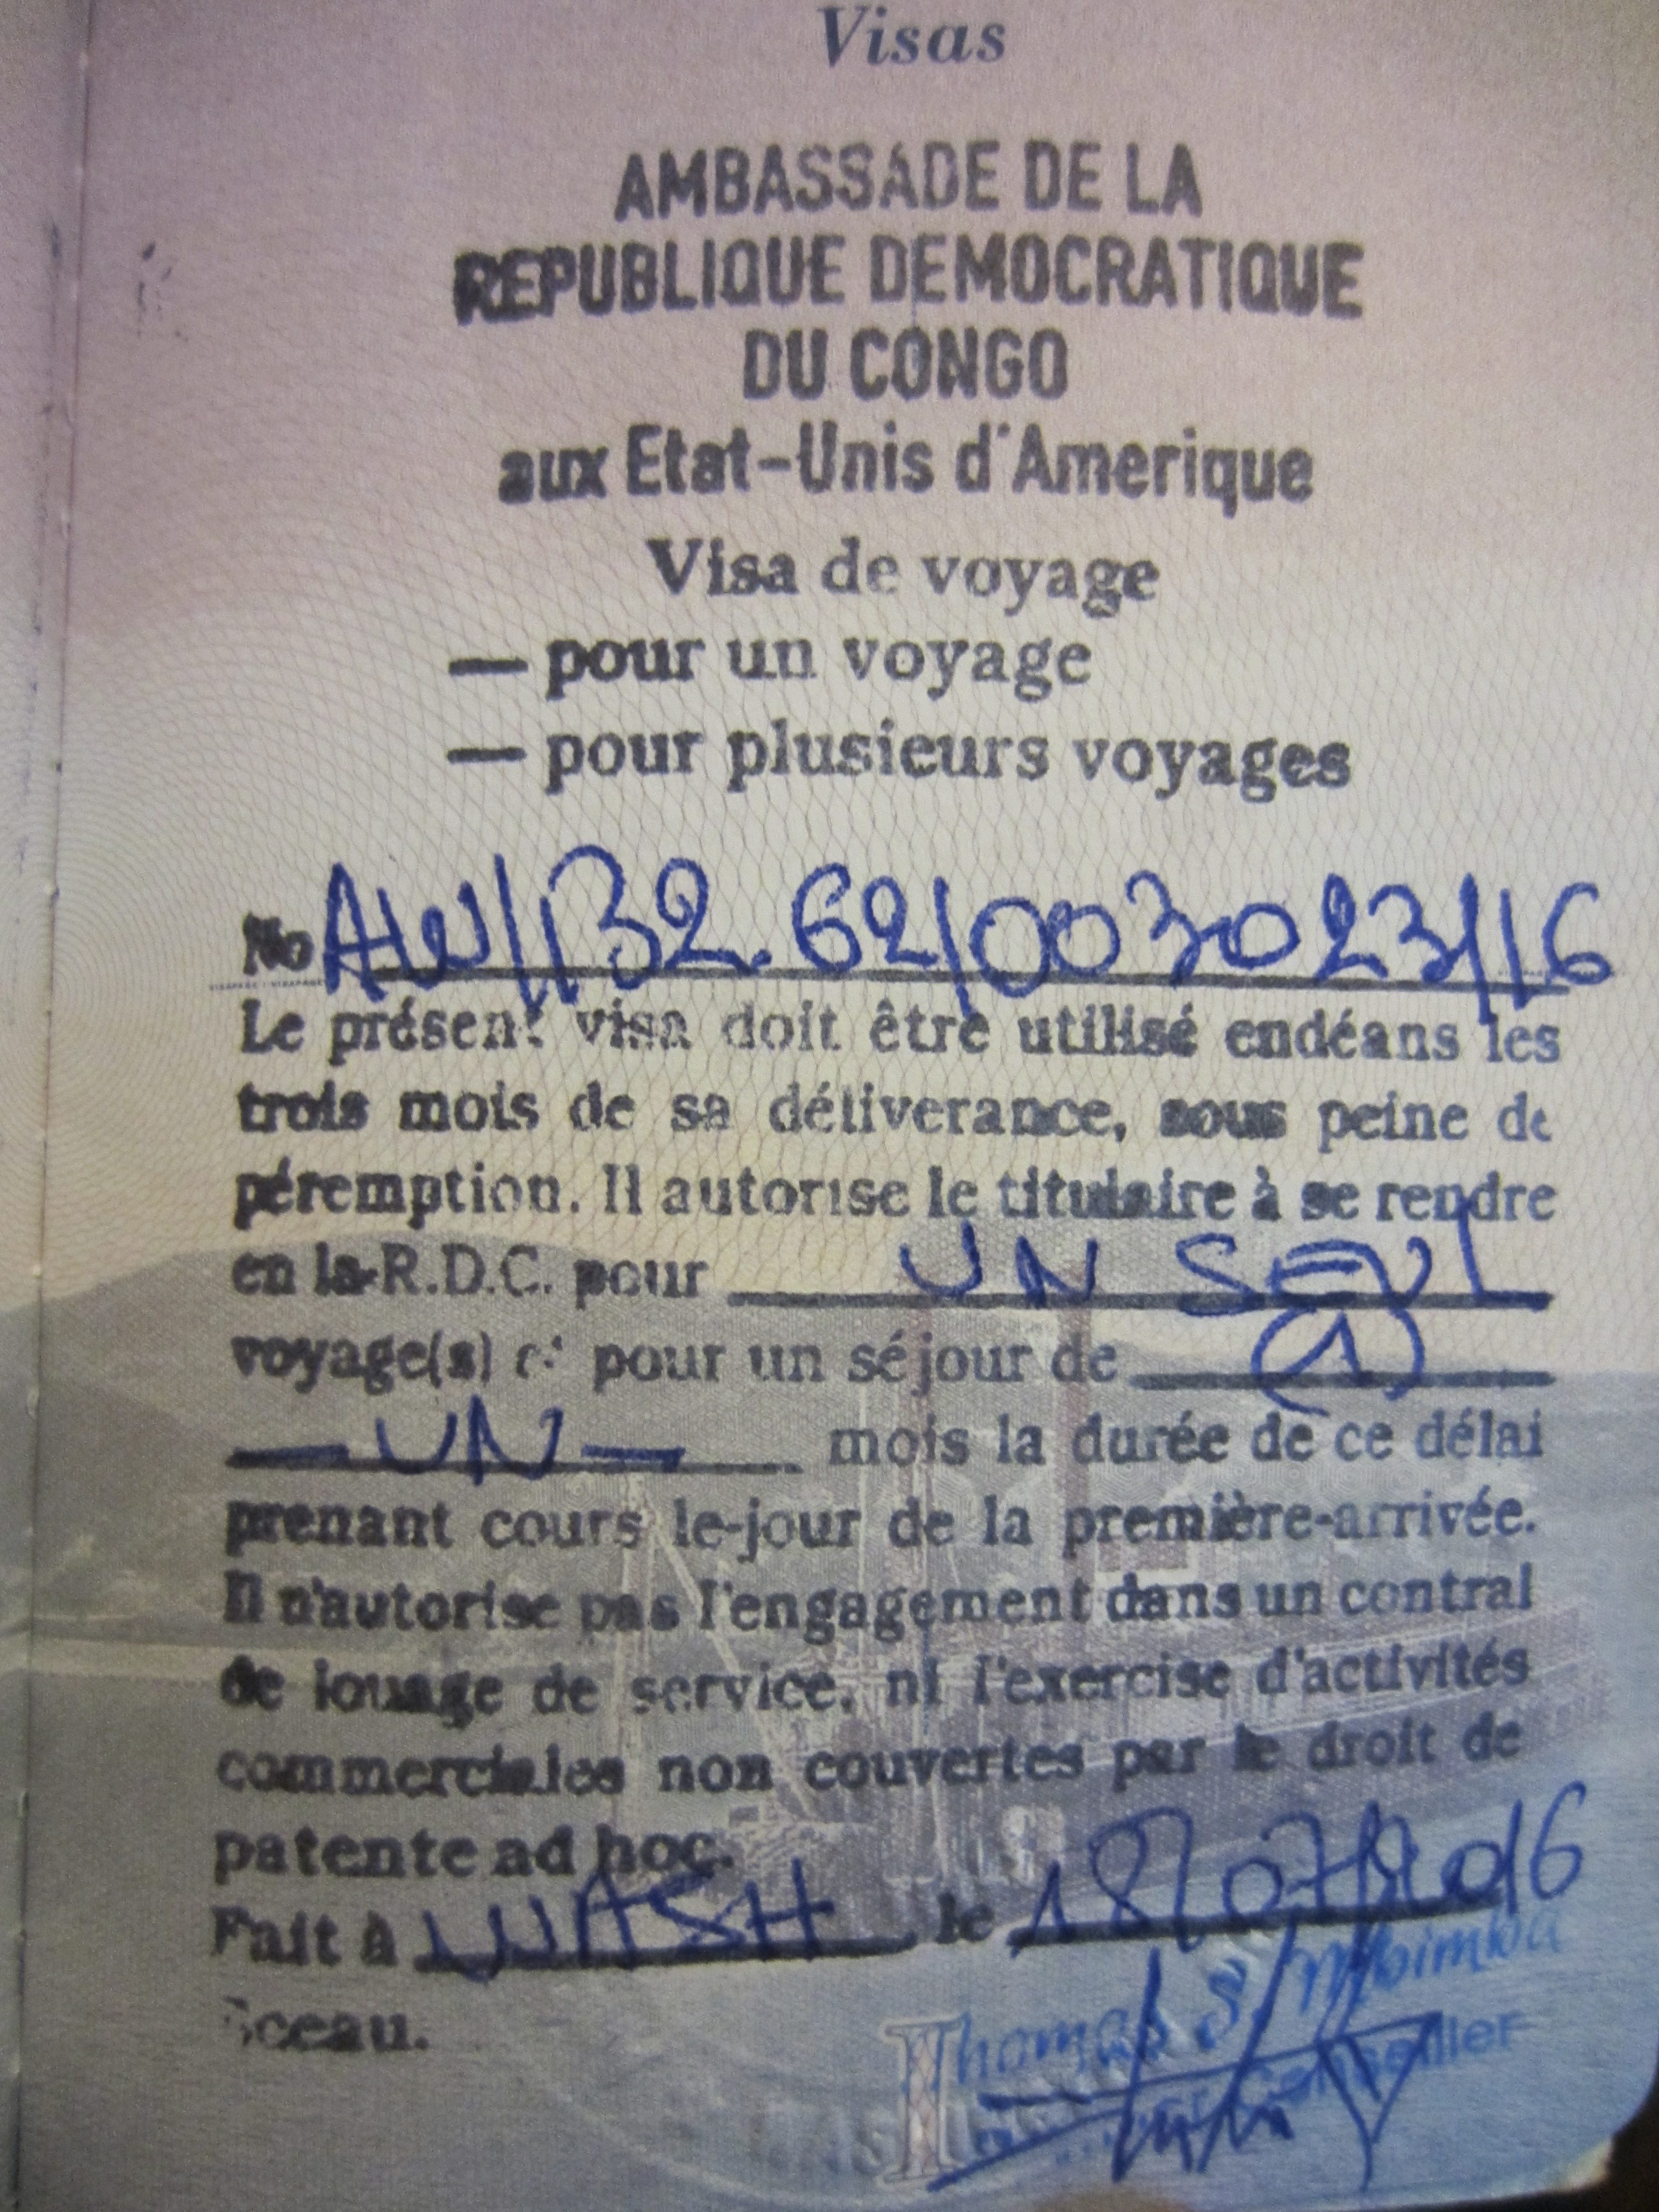 Visas
AMBASSADE DE LA
REPUBLIQUE DEMOCRATIQUE
DU CONGO
aux Etat-Unis d'Amerique
Visa de voyage
— pour un voyage
— pour plusieurs voyages
No AW/132.62/003023/16
Le présent visa doit être utilisé endéans les
trois mois de sa déliverance, sous peine de
péremption. Il autorise le titulaire à se rendre
en la R.D.C. pour UN SEUL
voyage(s) et pour un séjour de (1)
— UN — mois la durée de ce délai
prenant cours le-jour de la première-arrivée.
Il n'autorise pas l'engagement dans un contrat
de louage de service, ni l'exercise d'activités
commerciales non couvertes par le droit de
patente ad hoc.
Fait à WASH le 18/07/2016
Sceau.
Thomas S. Mbimba
Conseiller